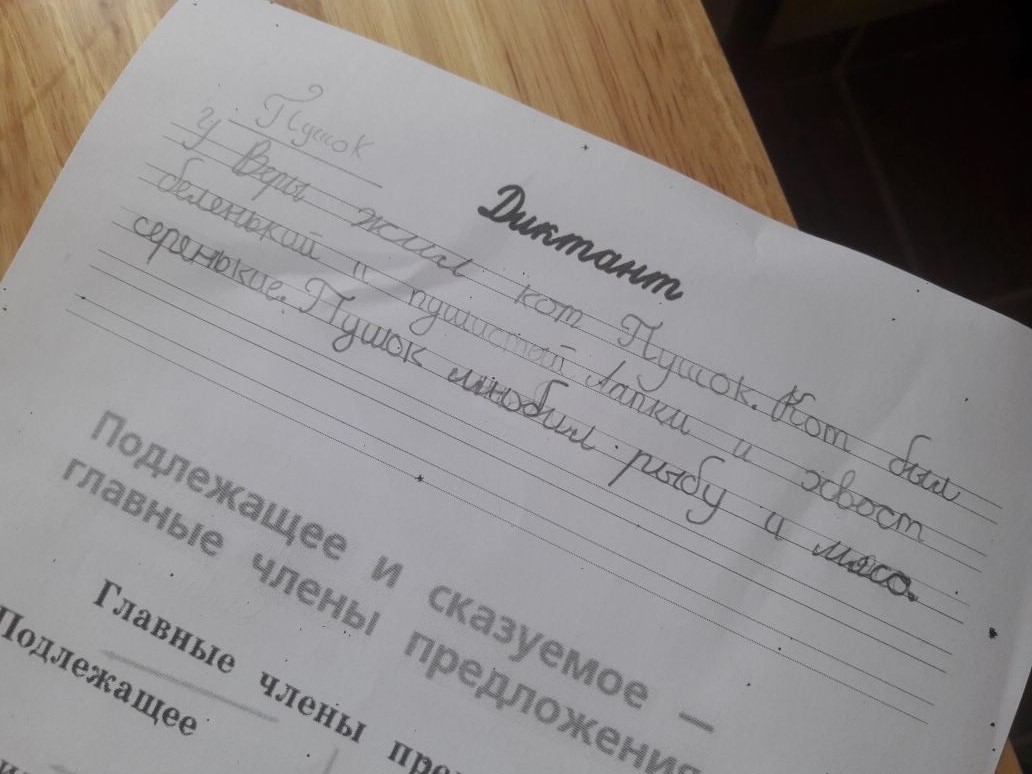 Пушок
Диктант
У Веры жил кот Пушок. Кот был
беленький и пушистый Лапки и хвост
серенькие. Пушок любил рыбу и мясо.
Подлежащее и сказуемое —
главные члены предложения
Главные члены
Подлежащее